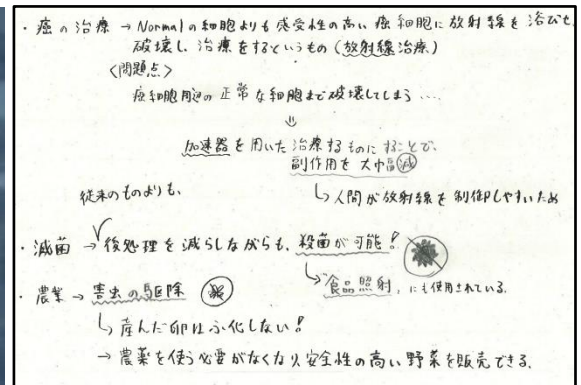 ・癌の治療 → Normalの細胞よりも感受性の高い癌細胞に放射線を浴びせ
破壊し、治療をするというもの(放射線治療)
<問題点>
癌細胞周辺の正常な細胞まで破壊してしまう…
⇓
加速器を用いた治療するものにすることで、
副作用を大中幅減
↳人間が放射線を制御しやすいため
従来のものよりも、
・滅菌 → 後処理を減らしながらも、殺菌が可能!
↳食品照射、にも使用されている。
・農業 → 害虫の駆除
↳産んだ卵はふ化しない!
→ 農薬を使う必要がなくなり、安全性の高い野菜を販売できる。